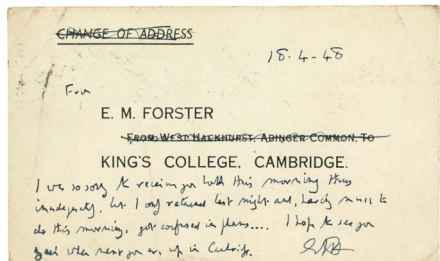 CHANGE OF ADDRESS
18-4-48
From
E. M. FORSTER
FROM WEST HACKHURST, ABINGER COMMON, TO
KING'S COLLEGE, CAMBRIDGE.
I was so sorry to receive you both this morning thus
inadequately, but I only returned last night and, having much to
do this morning, got confused in plans.... I hope to see you
when next you are up in Cambridge.